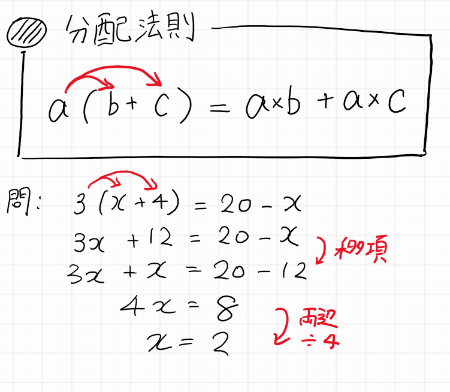 分配法則
a(b+c) = a×b + a×c
問: 3(x+4) = 20 - x
3x + 12 = 20 - x
移項
3x + x = 20 - 12
4x = 8
両辺
÷4
x = 2